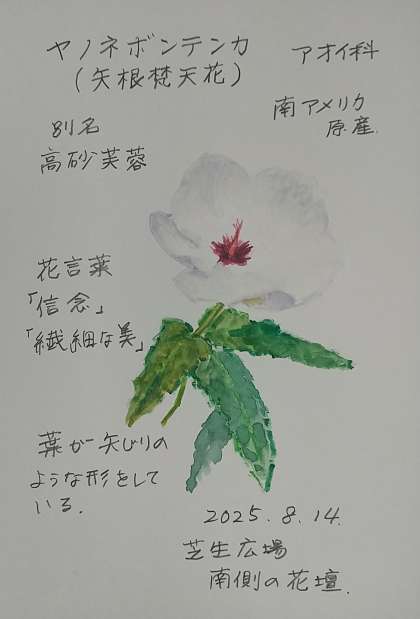 ヤノネボンテンカ
(矢根梵天花)
アオイ科
南アメリカ
原産.
別名
高砂芙蓉
花言葉
「信念」
「繊細な美」
葉が矢じりの
ような形をして
いる.
2025.8.14.
芝生広場
南側の花壇.